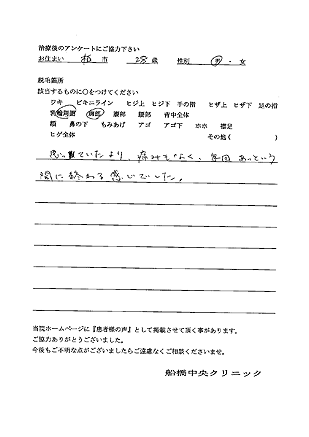 治療後のアンケートにご協力下さい
お住まい 柏 市 28 歳 性別 男・女
脱毛箇所
該当するものに○をつけてください
ワキ ビキニライン ヒジ上 ヒジ下 手の指 ヒザ上 ヒザ下 足の指
乳輪周囲 胸部 腹部 腰部 背中全体
顔 鼻の下 もみあげ アゴ アゴ下 ホホ 襟足
ヒゲ全体 その他(
思っていたより、痛みもなく、毎回あっという
間に終わる感じでした。
当院ホームページに『患者様の声』として掲載させて頂く事があります。
ご協力ありがとうございました。
今後もご不明な点がございましたらご遠慮なくご相談くださいませ。
船橋中央クリニック